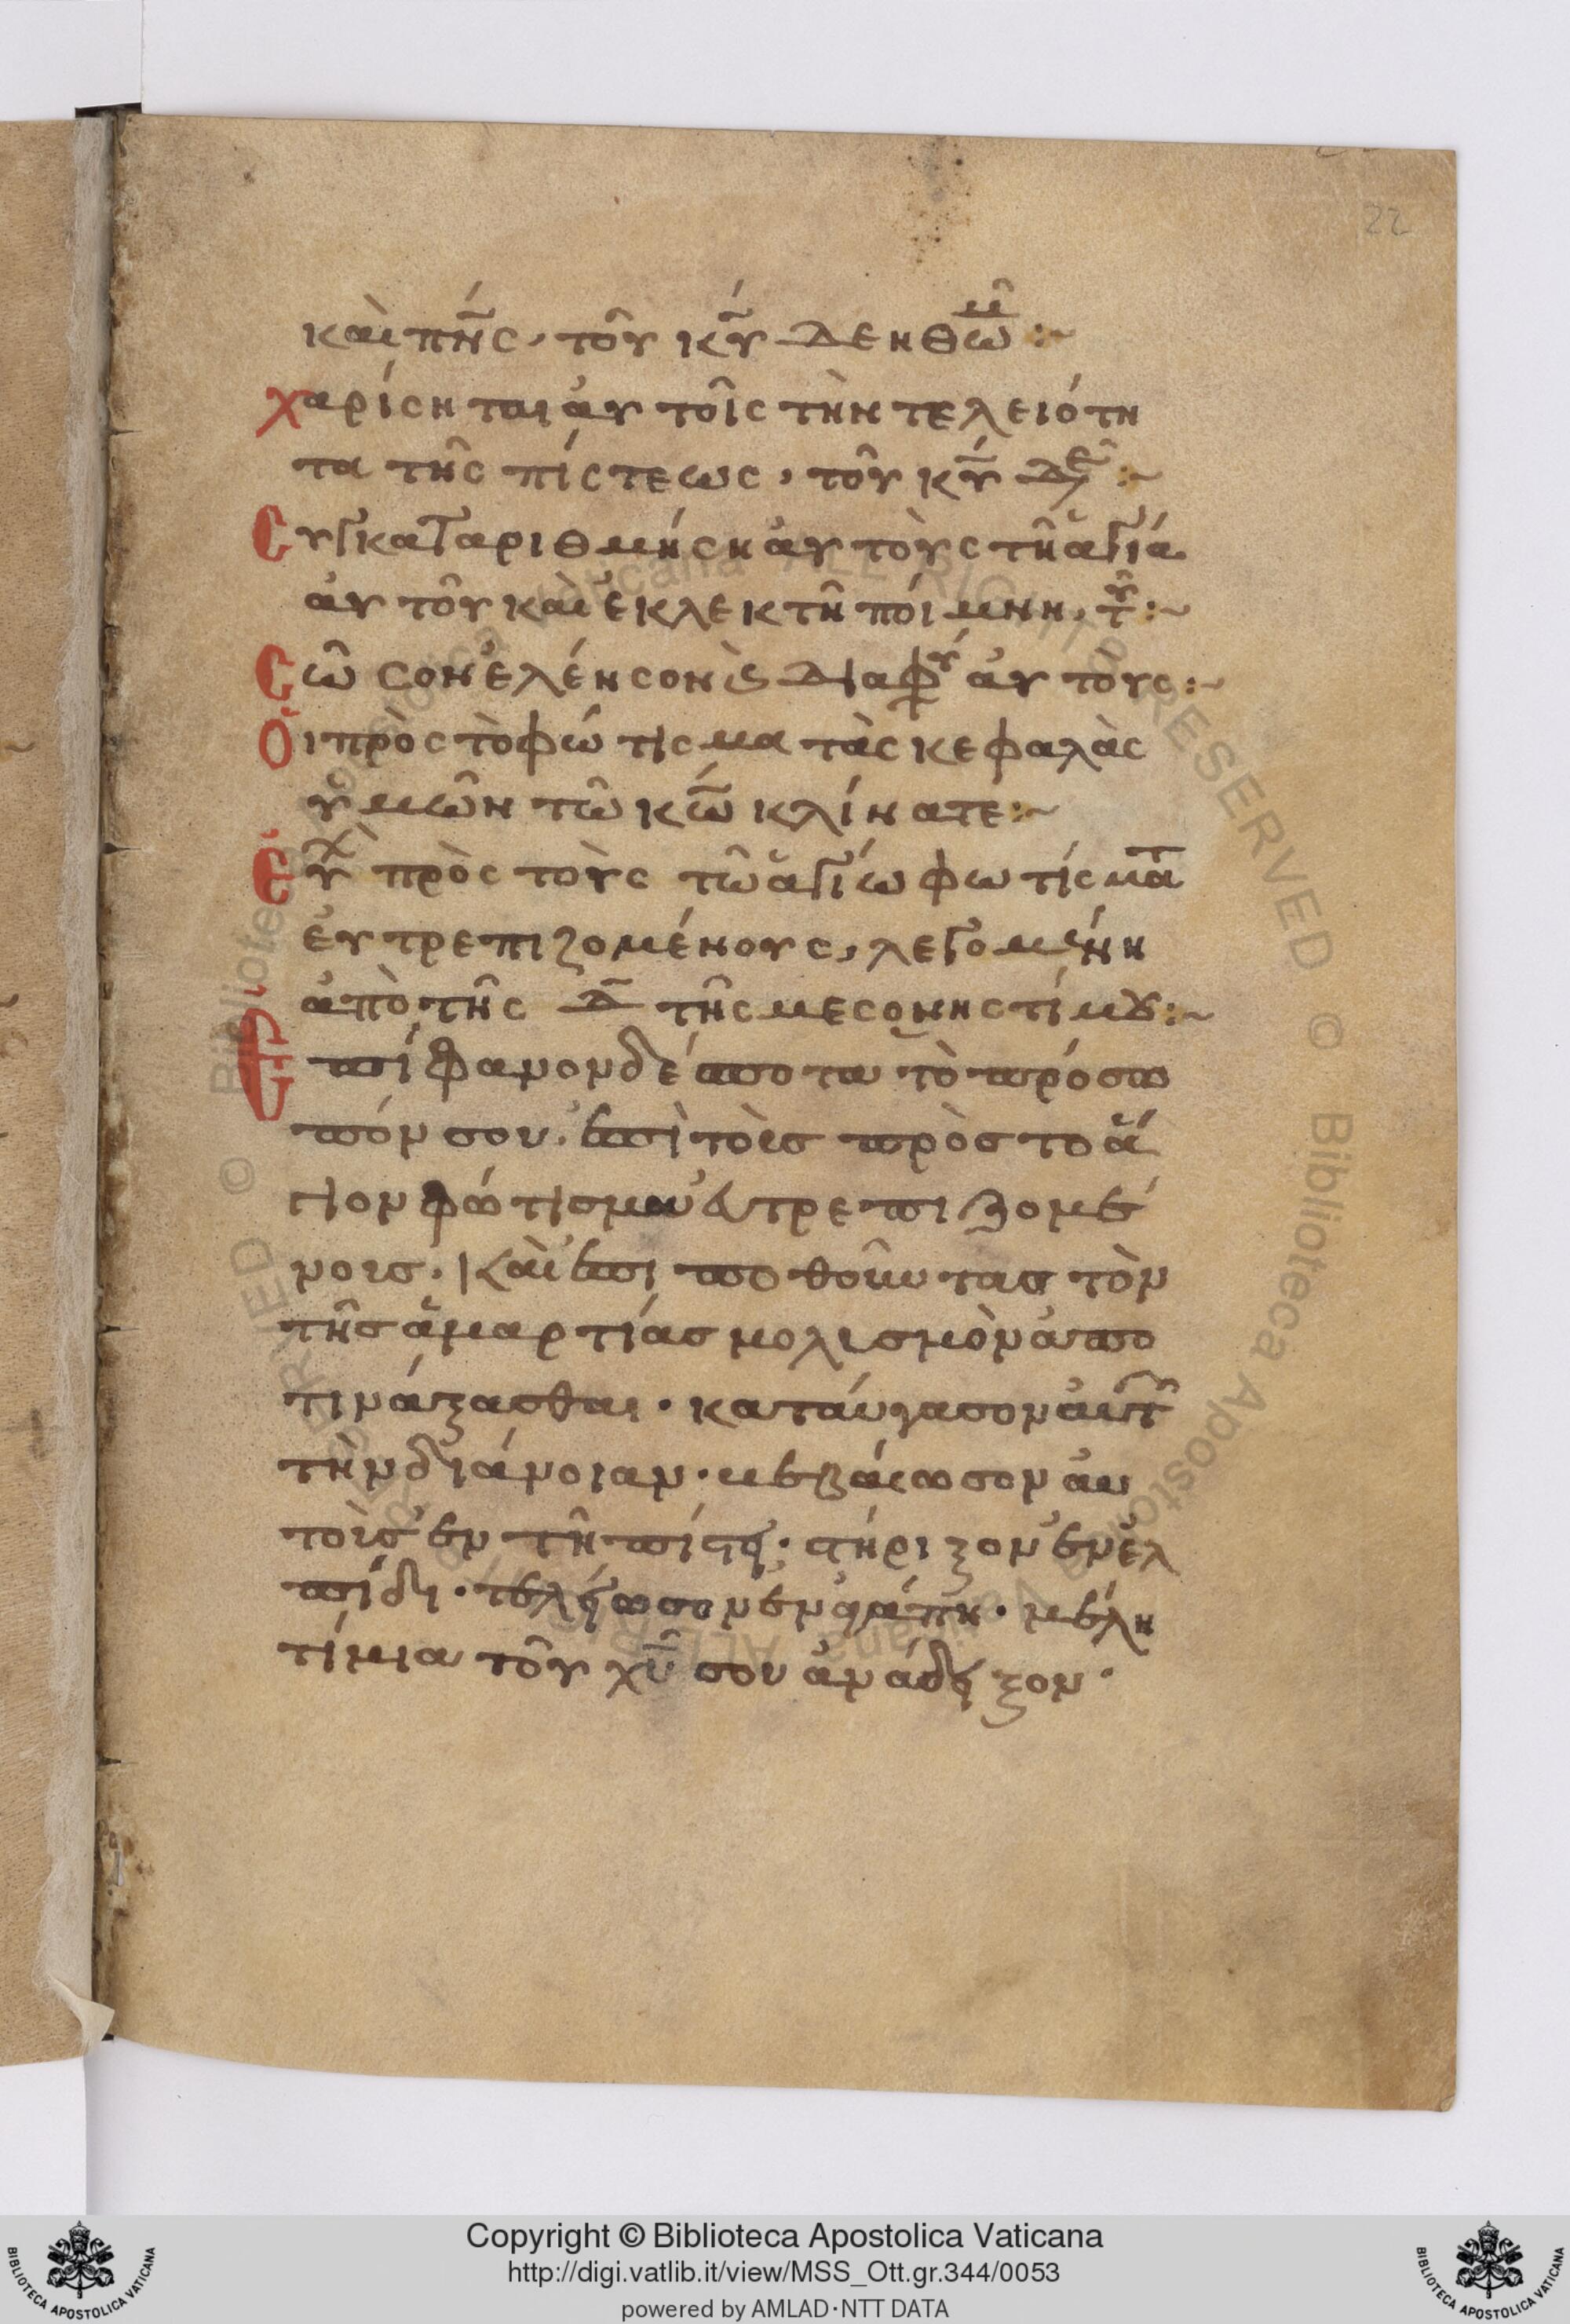 22
καὶ πν̅ς, τοῦ κῡ δεηθῶμ̅ :~
χαρίσηται αὐτοῖς τὴν τελειότη
τα τῆς πίστεως, τοῦ κῡ δε :~
Συγκαταριθμήση αὐτοὺς τῆ ἁγία
αὐτοῦ καὶ ἐκλεκτῆ ποίμνη, τοῦ :~
Σῶσον ἐλέησον ϗ διαφυ αὐτούς :~
Οἱ πρὸς τὸ φώτισμα τὰς κεφαλὰς
ὑμῶν τῶ κω̅ κλίνατε :~
Εὐχ πρὸς τοὺς τῶ ἁγίω φωτίσματ
εὐτρεπιζομένους, λεγομένη
ἀπὸ τῆς δ̅ τῆς μέσον νηστίμου :~
Ἐπίφανον δέσποτα τὸ πρόσω
πόν σου. ἐπὶ τοῖς πρὸς τὸ ἅ
γιον φώτισμα εὐτρεπιζομέ
νοις. καὶ ἐπιποθοῦντας τὸν
τῆς ἁμαρτίας μολισμὸν ἀπο
τινάξασθαι. καταύγασον αὐτ
τὴν διάνοιαν. βεβαίωσον αὐ
τοὺς ἐν τῆ πίστει. στήριξον ἐν ἐλ
πίδι. τελείωσον ἐν ἀγάπη. μέλη
τίμια τοῦ χῡ σου ἀνάδειξον.
Copyright © Biblioteca Apostolica Vaticana
http://digi.vatlib.it/view/MSS_Ott.gr.344/0053
powered by AMLAD·NTT DATA
BIBLIOTECA APOSTOLICA VATICANA
BIBLIOTECA APOSTOLICA VATICANA